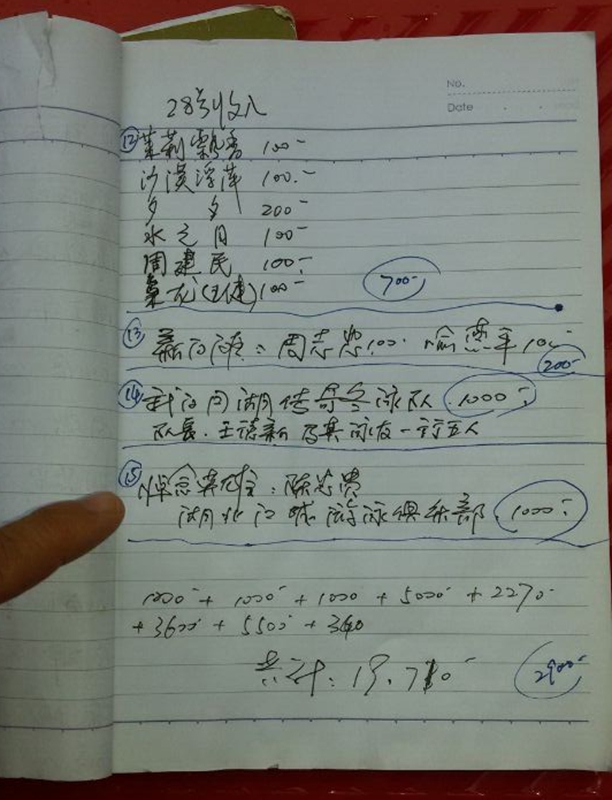 No.
Date
28号收入
⑫茉莉飘香 100-
沙漠浮萍 100.-
夕 夕 200-
水之月 100-
周建民 100.-
龙(王健)100-
700-
⑬ : 周志忠100. 喻 平100-
200-
⑭ 武汉月湖传奇冬泳队 1000-
队长.王德新 及其泳友一行五人
⑮悼念英 : 陈志贵
湖北江城游泳俱乐部 1000-
1000- + 1000- + 5000- + 2270-
+3600- + 5500- + 340
共计: 19.710-
2900-